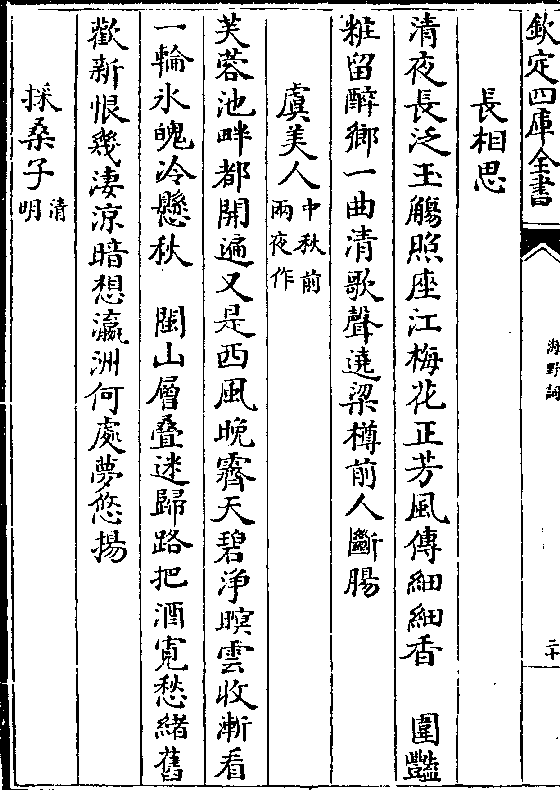 欽定四庫全書
海野詞
二十
長相思
清夜長泛玉觴照座江梅花正芳風傳細細香　圍豔
粧留醉鄉一曲清歌聲遶梁樽前人斷腸
虞美人中秋前兩夜作
芙蓉池畔都開遍又是西風晚霽天碧淨暝雲收漸看
一輪氷魄冷懸秋　閩山層疊迷歸路把酒寛愁緒舊
歡新恨幾淒涼暗想瀛洲何處夢悠揚
採桑子清明